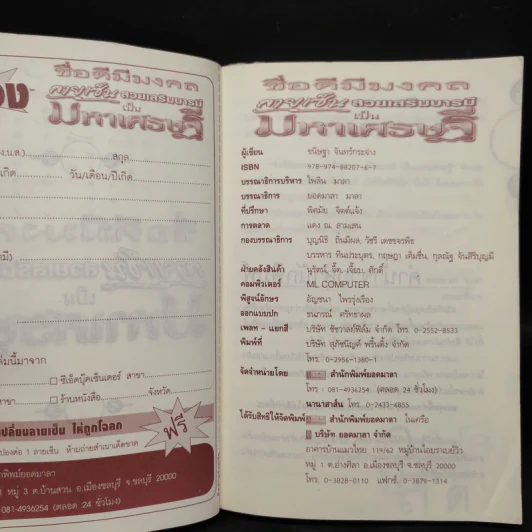 ง.น.ส.) สกุล
เกิด วัน/เดือน/ปีเกิด
ล่มนี้มาจาก
ซีเอ็ดบุ๊คเซ็นเตอร์ สาขา
สาขา ร้านหนังสือ จังหวัด
เปลี่ยนลายเซ็น ให้ถูกโฉลก
ฟรี
ปองต่อ 1 ลายเซ็น ห้ามถ่ายสำเนาเด็ดขาด
พิมพ์ยอดมาลา
1 หมู่ 3 ต.บ้านสวน อ.เมืองชลบุรี จ.ชลบุรี 20000
081-4936254 (ตลอด 24 ชั่วโมง)
ชื่อดีมีมงคล
ลายเซ็น สวยเสริมบารมี
เป็น
มหาเศรษฐี
ผู้เขียน ชนิษฐา จันทร์กระจ่าง
ISBN 978-974-88207-6-7
บรรณาธิการบริหาร ไพลิน มาลา
บรรณาธิการ ยอดมาลา มาลา
ที่ปรึกษา พิศมัย จิตต์แจ้ง
การตลาด แดง ณ. สามเสน
กองบรรณาธิการ บุญนิธิ ถิ่นมีผล, วัชรี เดชขจรพืช
บรรหาร ทินประบุตร, กฤษฎา เต็มชื่น, กุลณัฐ จันสิริบุญมี
ฝ่ายคลังสินค้า นุรัตน์, จี๊ด, เจี๊ยบ, ศักดิ์
คอมพิวเตอร์ ML COMPUTER
พิสูจน์อักษร อัญชนา ไพรรุ่งเรือง
ออกแบบปก ธนาภรณ์ ศรัทธาผล
เพลท - แยกสี บริษัท ชัชวาลย์ฟิล์ม จำกัด โทร. 0-2552-8533
พิมพ์ที่ บริษัท สุภัชนิญค์ พริ้นติ้ง จำกัด
โทร. 0-2956-1380-1
จัดจำหน่ายโดย สำนักพิมพ์ยอดมาลา
โทร : 081-4936254 (ตลอด 24 ชั่วโมง)
นานาสาส์น โทร..0-2433-4855
ได้รับสิทธิให้จัดพิมพ์ สำนักพิมพ์ยอดมาลา ในเครือ
บริษัท ยอดมาลา จำกัด
อาคารบ้านแมวไทย 119/62 หมู่บ้านโอบราเบย์วิว
หมู่ 1 ต.อ่างศิลา อ.เมืองชลบุรี จ.ชลบุรี 20000
โทร. 0-3828-0110 แฟกซ์. 0-3879-1314